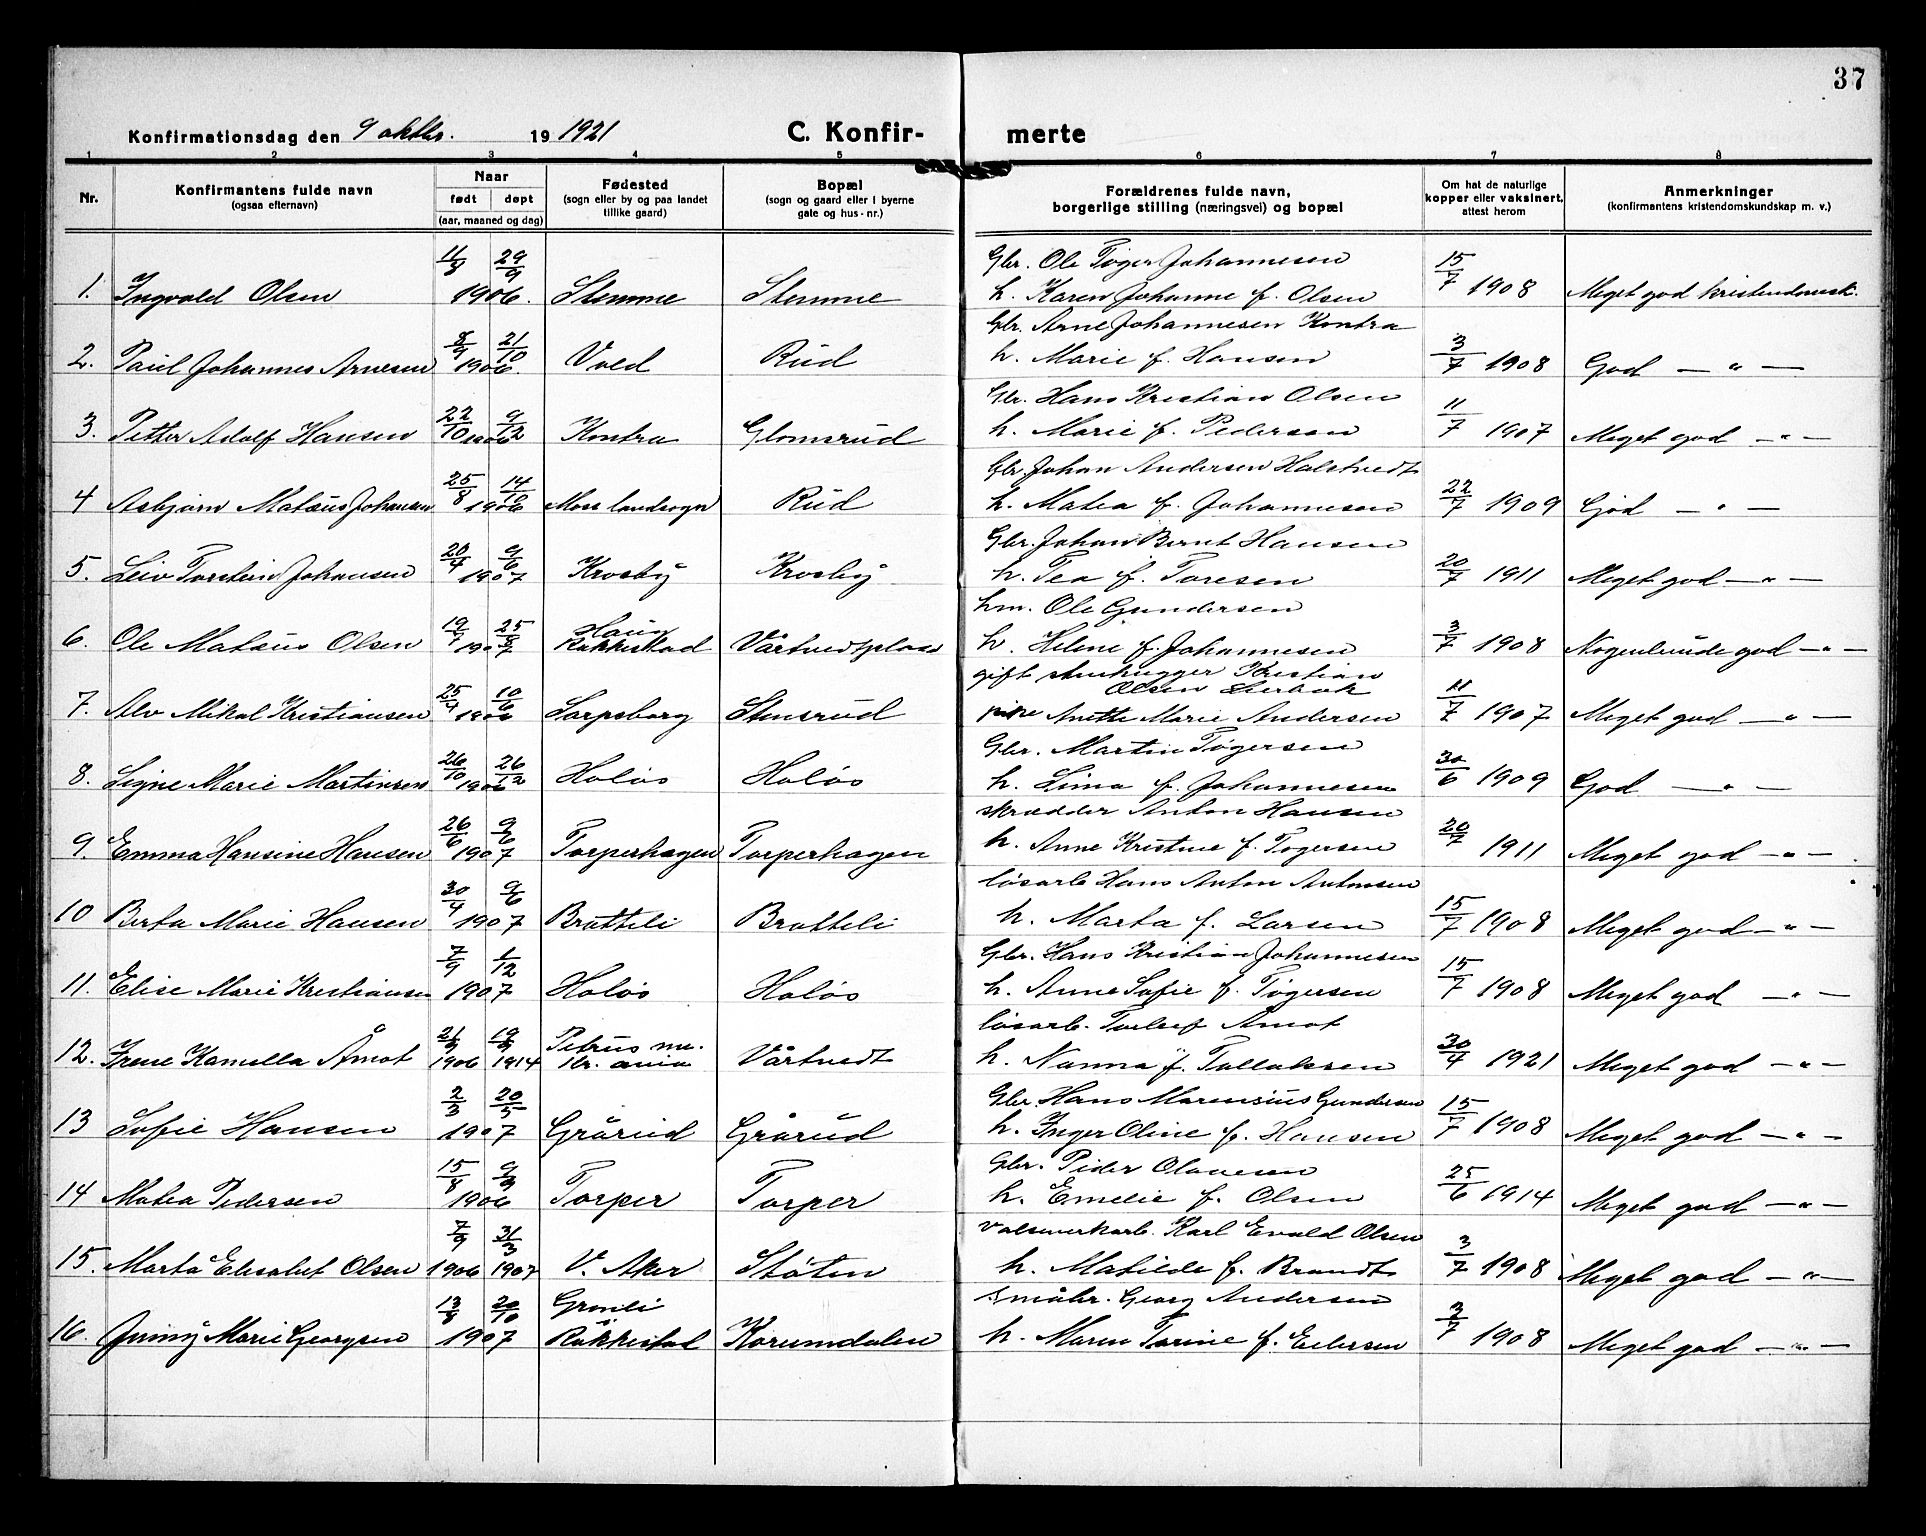 37
Konfirmationsdag den 9 oktbr. 19 1921 C. Konfir- merte
1 2 3 4 5 6 7 8
Nr. Konfirmantens fulde navn (ogsaa efternavn) Naar født døpt (aar, maaned og dag) Fødested (sogn eller by og paa landet tillike gaard) Bopæl (sogn og gaard eller i byerne gate og hus-nr.) Forældrenes fulde navn, borgerlige stilling (næringsvei) og bopæl Om hat de naturlige kopper eller vaksinert, attest herom Anmerkninger (konfirmantens kristendomskundskap m. v.)
11/8 29/9 Gbr. Ole Tøger Johannesen
1. Ingvald Olsen 1906. Stemme Stemme h. Karen Johanne f. Olsen 15/7 1908 Meget god kristendomsk.
8/9 21/10 Gbr. Arne Johannesen Kontra
2. Paul Johannes Arnesen 1906. Vold Rud h. Marie f. Hansen 3/7 1908 God — " —
22/10 9/12 Gbr. Hans Kristian Olsen
3. Petter Adolf Hansen 1906 Kontra Glomsrud h. Marie f. Pedersen 11/7 1907 Meget god — " —
25/8 14/10 Gbr. Johan Andersen Halstvedt
4 Asbjørn Matæus Johansen 1906 Moss landsogn Rud h. Matea f. Johannesen 22/7 1909 God — " —
20/4 9/6 Gbr. Johan Bernt Hansen
5. Leiv Torstein Johansen 1907 Krosby Krosby h. Tea f. Toresen 20/7 1911 Meget god — " —
19/7 25/8 Haug hm. Ole Gundersen
6. Ole Matæus Olsen 1907 Rakkestad Vårtvedtplass h. Helene f. Johannesen 3/7 1908 Nogenlunde god — " —
25/4 10/6 gift stenhugger Kristian
Olsen Lierbak
7. Alv Mikal Kristiansen 1906 Sarpsborg Stensrud pike Anette Marie Andersen 11/7 1907 Meget god — " —
26/10 26/12 Gbr. Martin Tøgersen
8. Signe Marie Martinsen 1906 Holøs Holøs h. Lina f. Johannesen 30/6 1909 God — " —
26/6 9/6 skrædder Anton Hansen
9. Emma Hansine Hansen 1907 Torperhagen Torperhagen h. Anne Kristine f. Togersen 20/7 1911 Meget god — " —
30/4 9/6 løsarb Hans Anton Antonsen
10 Berta Marie Hansen 1907 Bratteli Bratteli h. Marta f. Larsen 15/7 1908 Meget god — " —
7/9 1/12 Gbr. Hans Kristian Johannesen
11. Elise Marie Kristiansen 1907 Holøs Holøs h. Anne Sofie f. Tøgersen 15/7 1908 Meget god — " —
19/9 Petrus me. løsarb. Torleif Amot
12. Irene Kamella Åmot 1906 1914 Vårtvedt h. Nanna f. Tallaksen 30/4 1921 Meget god — " —
2/3 20/5 Gbr. Hans Marensius Gundersen
13 Sofie Hansen 1907 Grårud Grårud h. Inger Oline f. Hansen 15/7 1908 Meget god — " —
15/8 9/9 Gbr. Peder Olavesen
14 Matea Pedersen 1906 Torper Torper h. Emelie f. Olsen 25/6 1914 Meget god — " —
7/9 31/3 valseverkarb. Karl Evald Olsen
15. Marta Elisabet Olsen 1906 1907 V. Aker Støten h. Matilde f. Brandt 3/7 1908 Meget god — " —
13/8 20/10 Grønli Småbr. Georg Andersen
16. Jenny Marie Georgsen 1907 Rakkestad Korumdalen h. Maren Torine f. Eilersen 3/7 1908 Meget god — " —